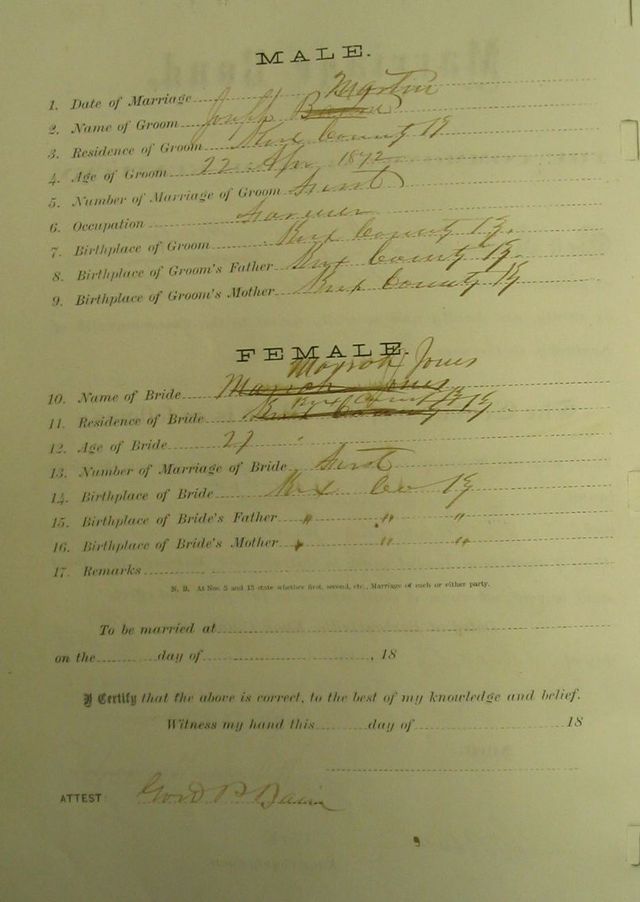 MALE.
1. Date of Marriage
2. Name of Groom Joseph Martin
3. Residence of Groom County Ky
4. Age of Groom 22 1872
5. Number of Marriage of Groom First
6. Occupation Farmer
7. Birthplace of Groom County Ky.
8. Birthplace of Groom's Father County Ky.
9. Birthplace of Groom's Mother County Ky
FEMALE.
10. Name of Bride Mariah Jones
11. Residence of Bride County Ky
12. Age of Bride 27
13. Number of Marriage of Bride First
14. Birthplace of Bride Co Ky
15. Birthplace of Bride's Father " " "
16. Birthplace of Bride's Mother " " "
17. Remarks
N. B. At Nos. 5 and 13 state whether first, second, etc., Marriage of each or either party.
To be married at
on the day of , 18
I Certify that the above is correct, to the best of my knowledge and belief.
Witness my hand this day of 18
ATTEST: